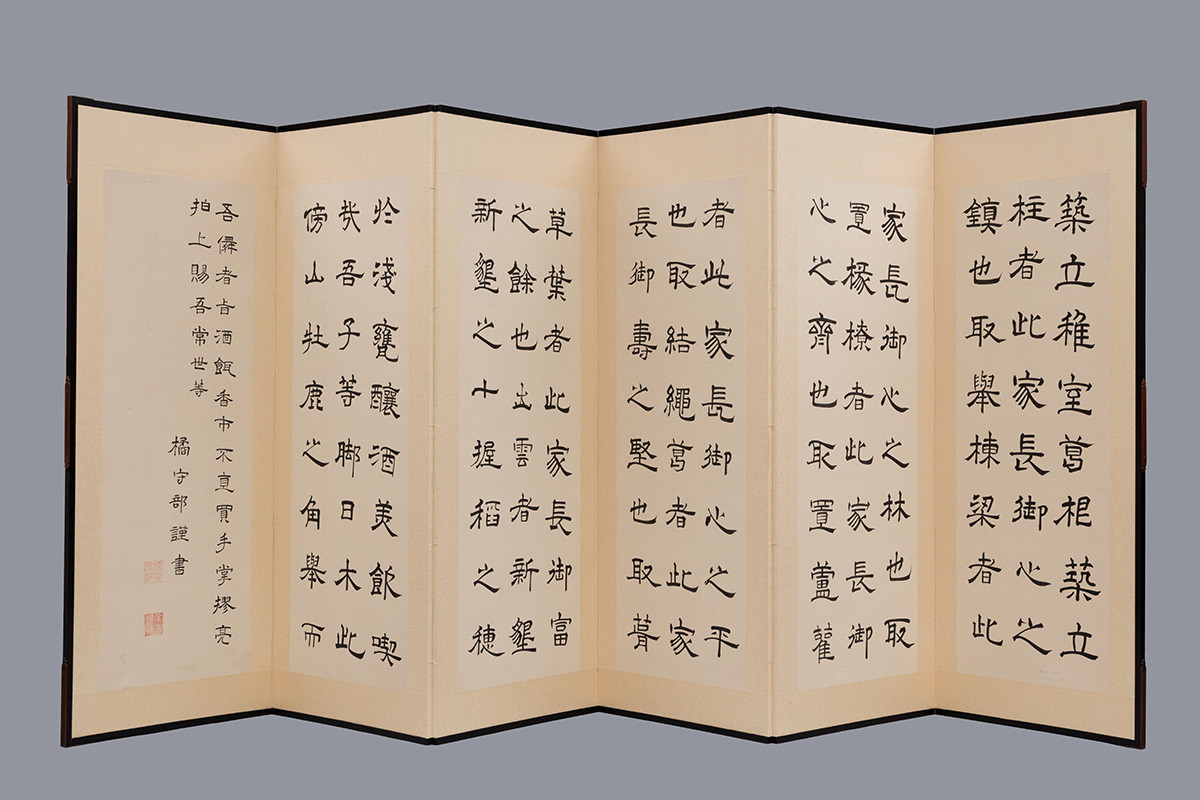 築立稚室葛根築立
柱者此家長御心之
鎮也取擧棟梁者此
家長御心之林也取
置椽橑者此家長御
心之齊也取置蘆雚
者此家長御心之平
也取結繩葛者此家
長御壽之堅也取葺
草葉者此家長御富
之餘也出雲者新墾
新墾之十握稻之穗
於淺甕釀酒美飯喫
哉吾子等脚日木此
傍山牡鹿之角擧而
吾儛者旨酒餌香市不直買手掌摎亮
拍上賜吾常世等
橘守部謹書